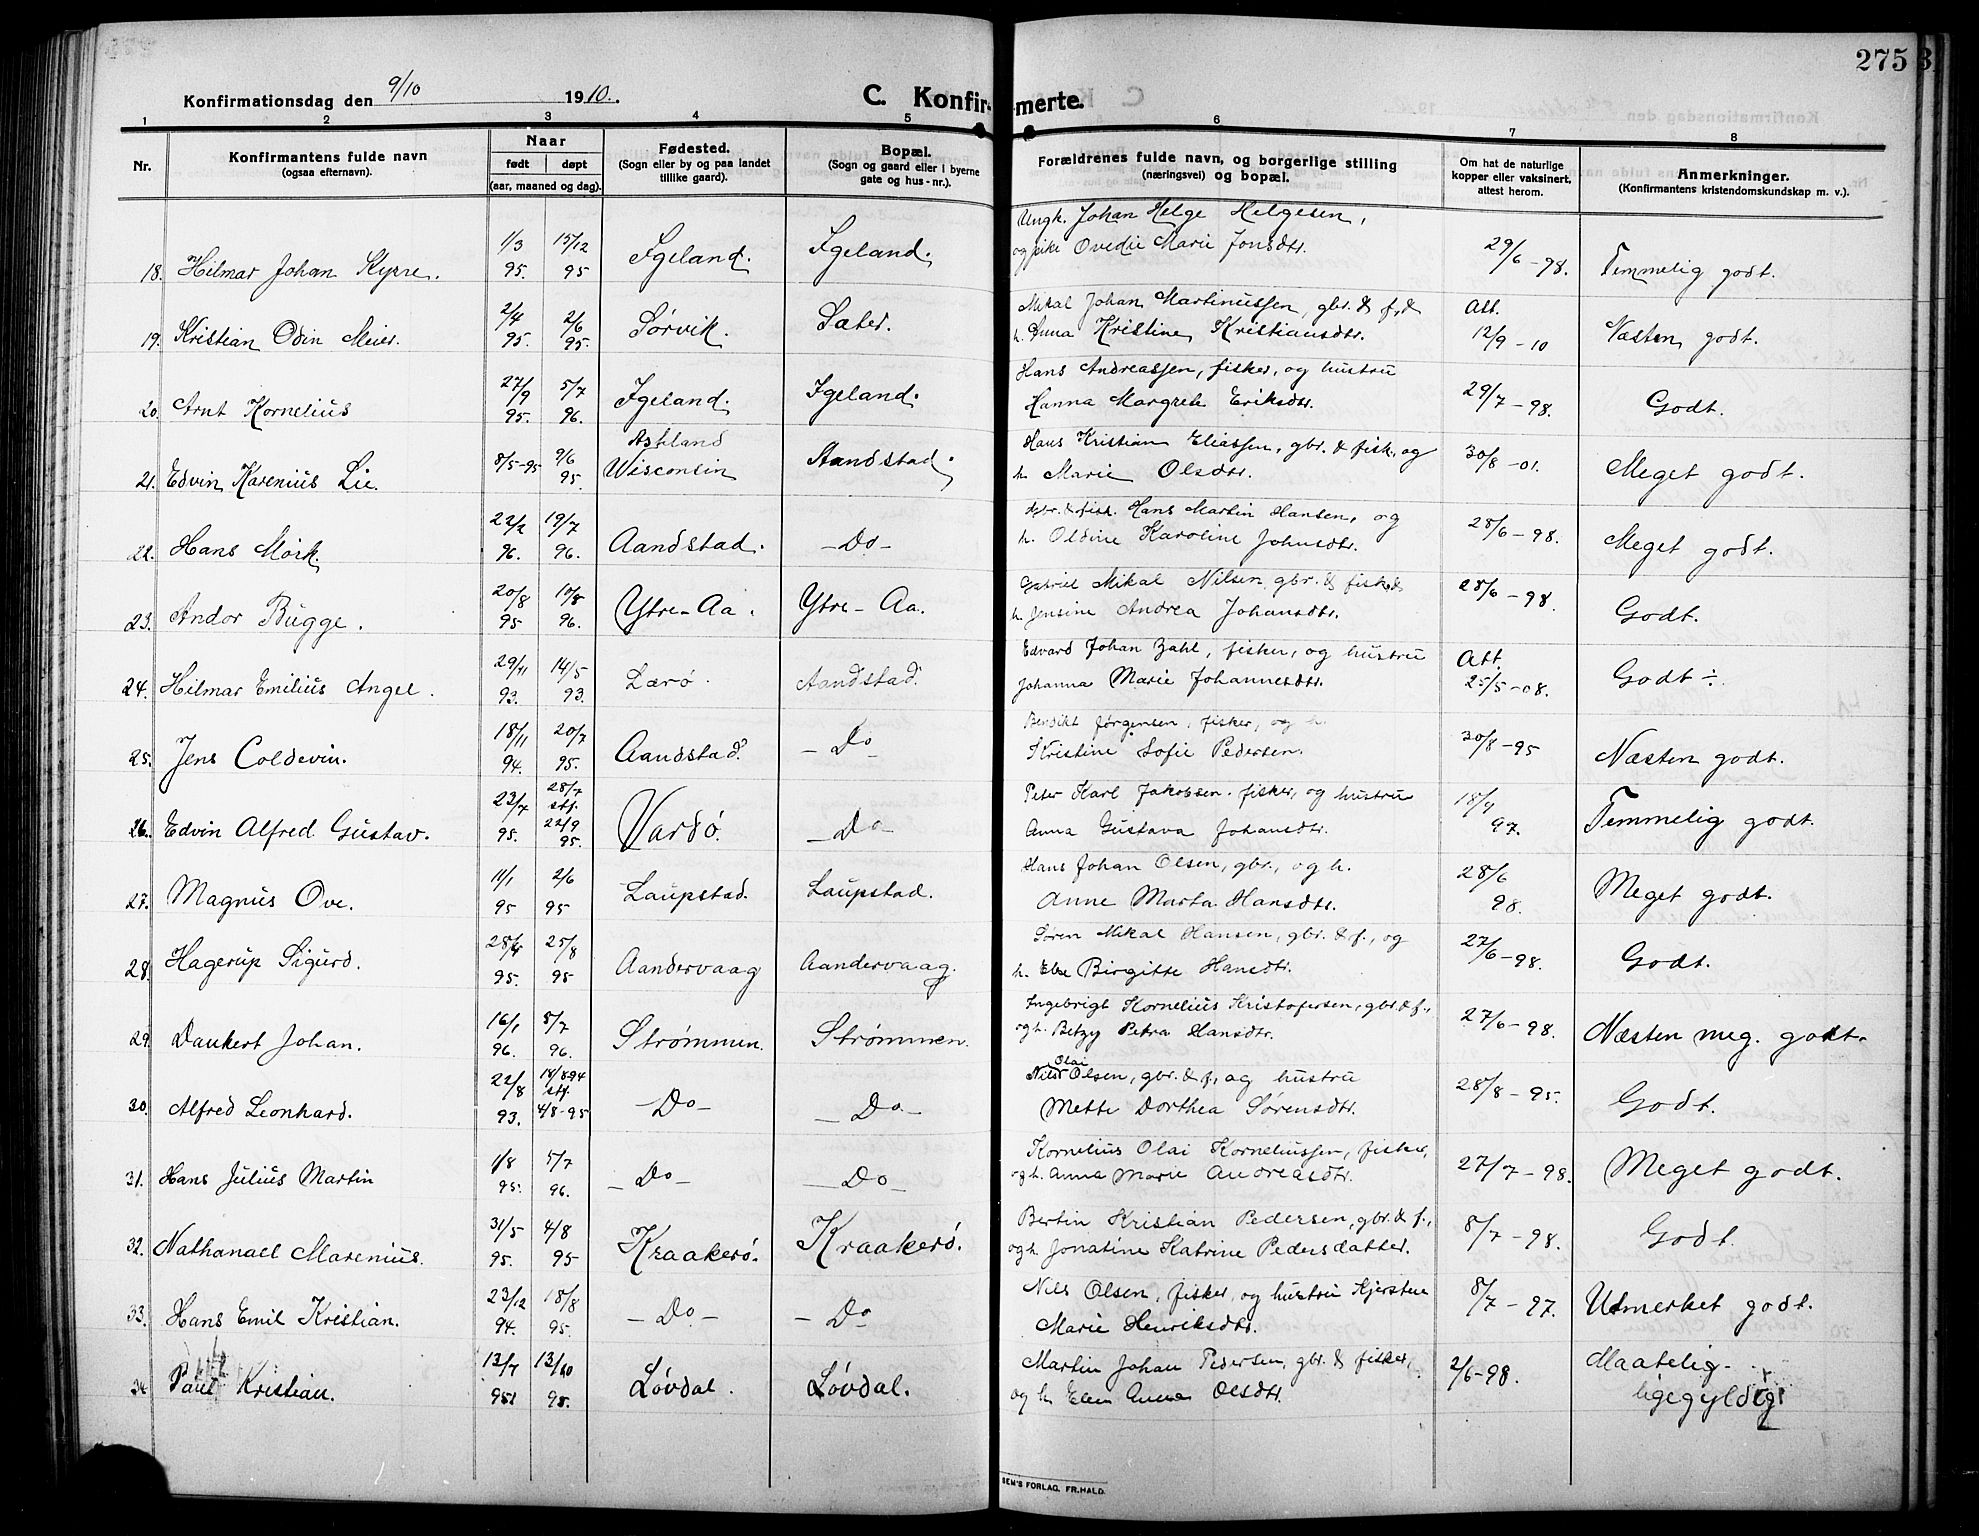 275
Konfirmationsdag den 9/10 1910.
C. Konfirmerte.
1 2 3 4 5 6 7 8
Nr.
Konfirmantens fulde navn
(ogsaa efternavn).
Naar
født døpt
(aar, maaned og dag).
Fødested.
(Sogn eller by og paa landet
tillike gaard).
Bopæl.
(Sogn og gaard eller i byerne
gate og hus-nr.).
Forældrenes fulde navn, og borgerlige stilling
(næringsvei) og bopæl.
Om hat de naturlige
kopper eller vaksinert,
attest herom.
Anmerkninger.
(Konfirmantens kristendomskundskap m. v.).
Ungk. Johan Helge Helgesen,
18. Hilmar Johan Kyrre. 1/3 95. 15/12 95 Igeland. Igeland. og pike Ovedie Marie Jonsdtr. 29/6-98. Temmelig godt.
Mikal Johan Martinussen, gbr. & f., &
19. Kristian Odin Meier. 2/4 95. 2/6 95. Sørvik. Sæter. h. Anna Kristine Kristiansdtr. Att. 12/9-10 Næsten godt.
Hans Andreassen, fisker, og hustru
20. Arnt Kornelius 27/9 95. 5/7 96. Igeland. Igeland. Hanna Margrete Eriksdtr. 29/7-98. Godt.
Hans Kristian Eliassen, gbr. & fisk., og
21. Edvin Karenius Lie. 8/5-95 9/6 95. Ashland Wisconsin Aandstad. h. Marie Olsdtr. 30/8-01. Meget godt.
gbr. & fisk. Hans Martin Hansen, og
22. Hans Mørk. 22/2 96. 19/7 96. Aandstad. -Do- h. Oldine Karoline Johnsdtr. 28/6-98. Meget godt.
Gabriel Mikal Nilsen gbr. & fisk, &
23. Andor Bugge. 20/8 95 10/8 96. Ytre-Aa. Ytre-Aa. h. Jensine Andrea Johansdtr. 28/6-98. Godt.
Edvard Johan Zahl, fisker, og hustru
24. Hilmar Emilius Angel. 29/11 93. 14/5 93. Lærø. Aandstad. Johanna Marie Johannesdtr. Att. 25/5-08. Godt ÷.
Benedikt Jørgensen, fisker, og h.
25. Jens Coldevin. 18/11 94. 20/7 95. Aandstad. -Do- Kristine Sofie Pedersen. 30/8-95 Næsten godt.
Peter Karl Jakobsen, fisker, og hustru
26. Edvin Alfred Gustav. 23/7 95. 28/7 stf. 22/9 95. Vardø. -Do- Anna Gustava Johansdtr. 18/9 97. Temmelig godt.
Hans Johan Olsen, gbr., og h.
27. Magnus Ove. 11/1 95 2/6 95 Laupstad. Laupstad. Anne Marta Hansdtr. 28/6 98. Meget godt.
Søren Mikal Hansen, gbr. & f., og
28. Hagerup Sigurd. 28/4 95. 25/8 95 Aandervaag Aandervaag. h. Else Birgitte Hansdtr. 27/6-98. Godt.
Ingebrigt Kornelius Kristofersen, gbr. & f.,
29. Dankert Johan. 16/1 96. 5/7 96. Strømmen. Strømmen. og h. Betzy Petra Hansdtr. 27/6-98. Næsten meg. godt.
Nils Olai Olsen, gbr. & f., og hustru
30. Alfred Leonhard. 22/8 93. 18/8-94 stf. 4/8-95 -Do- -Do- Mette Dorthea Sørensdtr. 28/8-95. Godt.
Kornelius Olai Korneliussen, fisker,
31. Hans Julius Martin 1/8 95. 5/7 96. -Do- -Do- og h. Anna Marie Andreasdtr. 27/7-98. Meget godt.
Bertin Kristian Pedersen, gbr. & f.,
32. Nathanael Marenius. 31/5 95. 4/8 95 Kraakerø. Kraakerø. og h. Jonatine Katrine Pedersdatter. 8/7-98. Godt.
Nils Olsen, fisker, og hustru Kjerstene
33. Hans Emil Kristian. 23/12 94. 18/8 95. -Do- -Do Marie Henriksdtr. 8/7-97. Utmerket godt.
Martin Johan Pedersen, gbr. & fisker,
34 Paul Kristian. 13/7 95 13/10 95. Løvdal. Løvdal. og h. Elen Anna Olsdtr. 2/6-98. Maatelig-
ligegyldig
SEM'S FORLAG. FR.HALD.